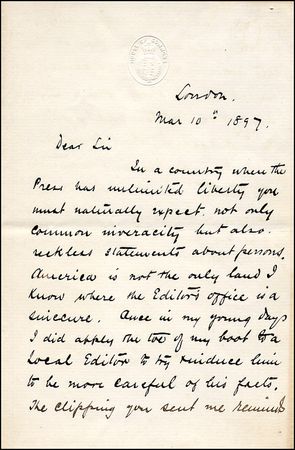 London.
Mar 10th 1897.
Dear Sir
In a country where the
Press has unlimited liberty you
must naturally expect not only
common inveracity but also
reckless statements about persons.
America is not the only land I
know where the Editor's office is a
sinecure. Once in my young days
I did apply the toe of my boot to a
Local Editor to try & induce him
to be more careful of his facts.
The clipping you sent me reminds